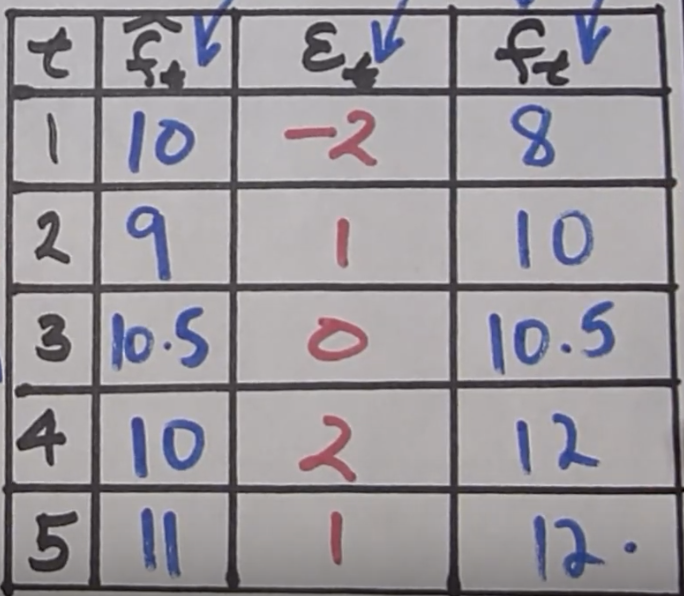 t f̂t εt ft
1 10 -2 8
2 9 1 10
3 10.5 0 10.5
4 10 2 12
5 11 1 12.